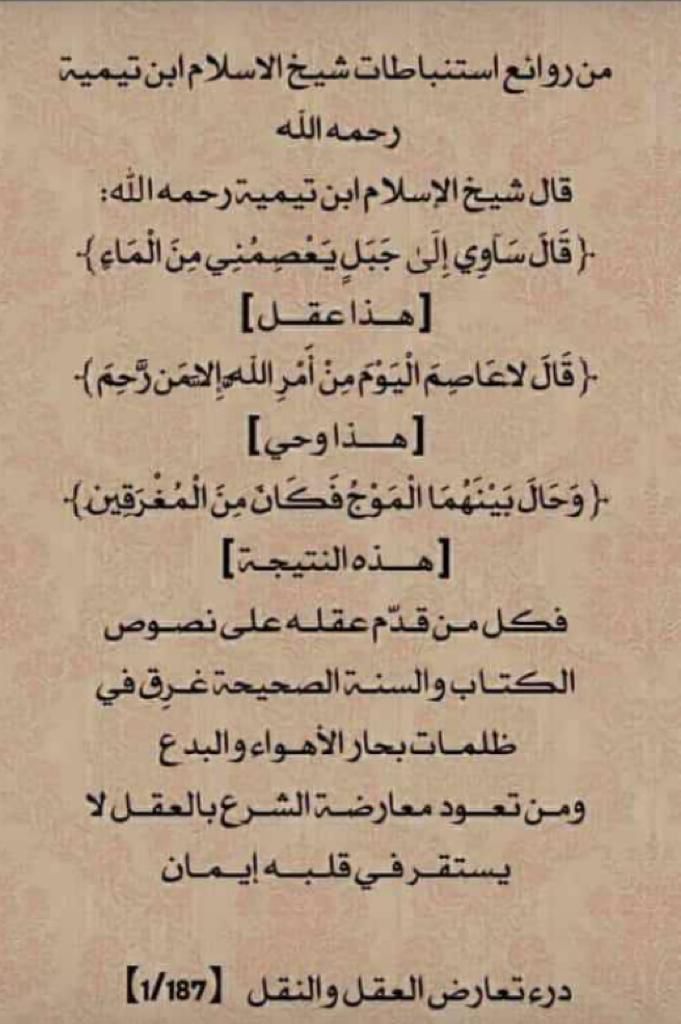 من روائع استنباطات شيخ الاسلام ابن تيمية
رحمه الله
قال شيخ الإسلام ابن تيمية رحمه الله:
{قَالَ سَآوِي إِلَىٰ جَبَلٍ يَعْصِمُنِي مِنَ الْمَاءِ}
[هـذا عقـل]
{قَالَ لا عَاصِمَ الْيَوْمَ مِنْ أَمْرِ اللهِ إِلا مَن رَّحِمَ}
[هــذا وحي]
{وَحَالَ بَيْنَهُمَا الْمَوْجُ فَكَانَ مِنَ الْمُغْرَقِين}
[هــذه النتيجـة]
فكـل مـن قـدّم عقلـه علـى نصـوص
الكتـاب والسنـة الصحيحة غـرِق في
ظلمـات بحار الأهـواء والبدع
ومـن تعـود معارضـة الشـرع بالعقـل لا
يستقـر فـي قلبـه إيـمـان
درء تعارض العقل والنقل [1/187]